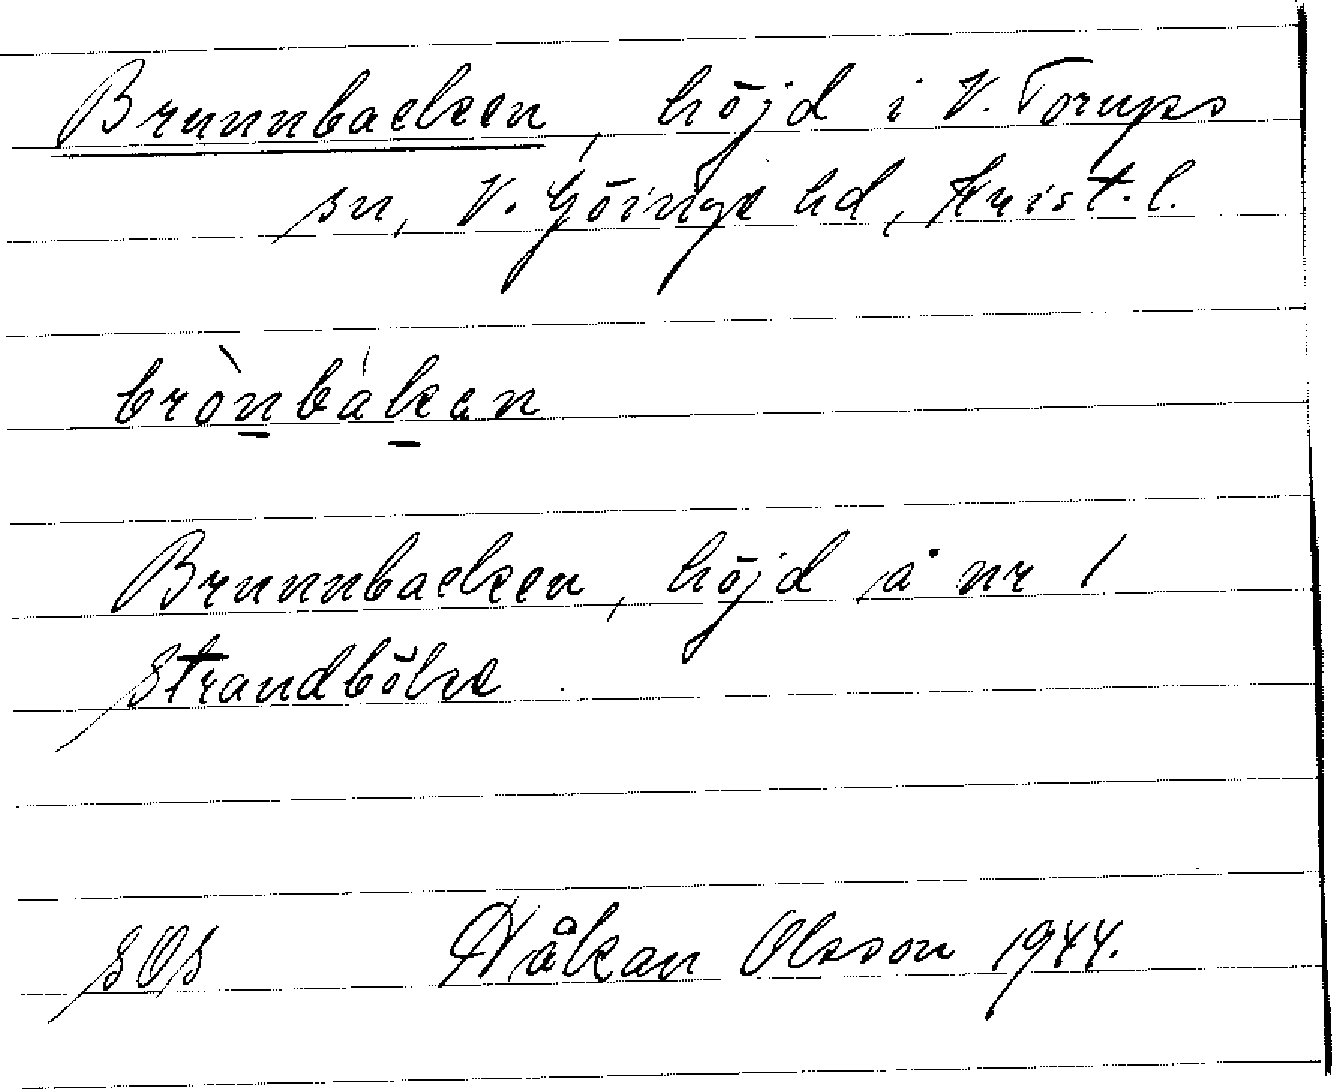 Brunnbacken, höjd i V. Torups
sn, V. Göinge hd, Krist. l.
brònbákan
Brunnbacken, höjd å nr 1
Strandböke.
SOS Håkan Olsson 1944.